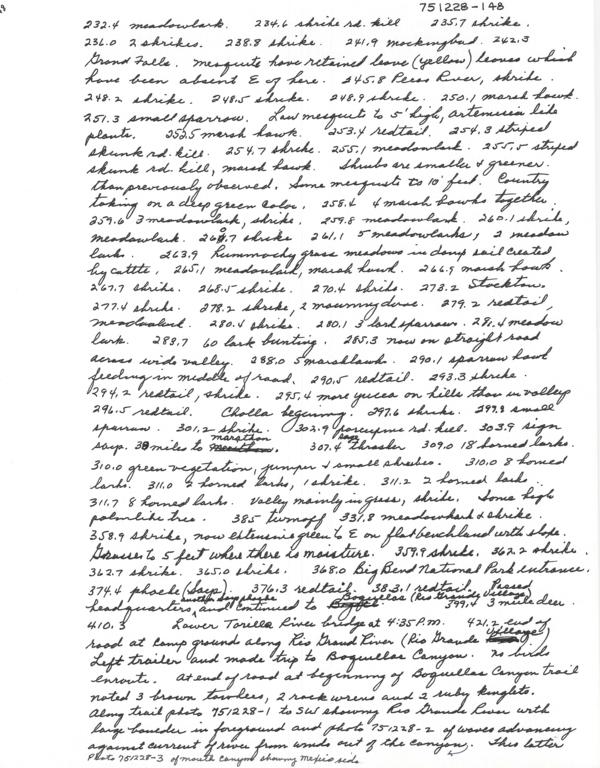 751228-148
232.4 meadowlark. 234.6 shrike rd. kill 235.7 shrike.
236.0 2 shrikes. 238.8 shrike. 241.9 mockingbird. 242.3
Grand Falls. Mesquite have retained leave (yellow) leaves which
have been absent E of here. 245.8 Pecos River, shrike.
248.2 shrike. 248.5 shrike. 248.9 shrike. 250.1 marsh hawk.
251.3 small sparrow. Low mesquite to 5' high, artemesia like
plants. 252.5 marsh hawk. 253.4 redtail. 254.3 striped
skunk rd. kill. 254.7 shrike. 255.1 meadowlark. 255.5 striped
skunk rd. kill, marsh hawk. Shrubs are smaller & greener
than previously observed. Some mesquite to 10 feet. Country
taking on a deep green color. 258.4 4 marsh hawks together.
259.6 3 meadowlark, shrike. 259.8 meadowlark. 260.1 shrike,
meadowlark. 260.7 shrike 261.1 5 meadowlarks, 2 meadow
larks. 263.9 hummocky grass meadows in damp soil created
by cattle. 265.1 meadowlark, marsh hawk. 266.9 marsh hawk.
267.7 shrike. 268.5 shrike. 270.4 shrike. 273.2 Stockton.
277.4 shrike. 278.2 shrike, 2 mourning dove. 279.2 redtail,
meadowlark. 280.4 shrike. 280.1 3 lark sparrows. 281.4 meadow
lark. 283.7 60 lark bunting. 285.3 now on straight road
across wide valley. 288.0 5 marsh hawks. 290.1 sparrow hawk
feeding in middle of road. 290.5 redtail. 293.3 shrike.
294.2 redtail, shrike. 295.4 more yucca on hills than in valley
296.5 redtail. Cholla begining. 297.6 shrike. 297.9 small
sparrow. 301.2 shrike. 302.9 porcupine rd. kill. 303.9 sign
says 38 miles to marathon. 307.4 sage thrasher 309.0 18 horned larks.
310.0 green vegetation, juniper & small shrubs. 310.0 8 horned
larks. 311.0 2 horned larks, 1 shrike. 311.2 2 horned lark
311.7 8 horned larks. Valley mainly in grass, shrike. Some high
palm like tree. 385 turnoff 331.8 meadowhark & shrike.
358.9 shrike, now extensive green to E on flat benchland with slope.
Grasses to 5 feet when there is moisture. 359.9 shrike. 362.2 shrike.
362.7 shrike. 365.0 shrike. 368.0 Big Bend National Park entrance.
374.4 phoebe (Says). 376.3 redtail. 383.1 redtail. Passed
headquarters, and continued to Boquellas (Rio Grande Village) 399.4 3 mule deer.
410.3 Lower Torilla River bridge at 4:35 P.M. 421.2 end of
road at camp ground along Rio Grand River (Rio Grande Village)
Left trailer and made trip to Boquellas Canyon. no birds
enroute. At end of road at beginning of Boquellas Canyon trail
noted 3 brown towhees, 2 rock wrens and 2 ruby kinglets.
Along trail photo 751228-1 to SW showing Rio Grande River with
large boulder in foreground and photo 751228-2 of waves advancing
against current of river from winds out of the canyon. This latter
Photo 751228-3 of mouth canyon showing Mexico side